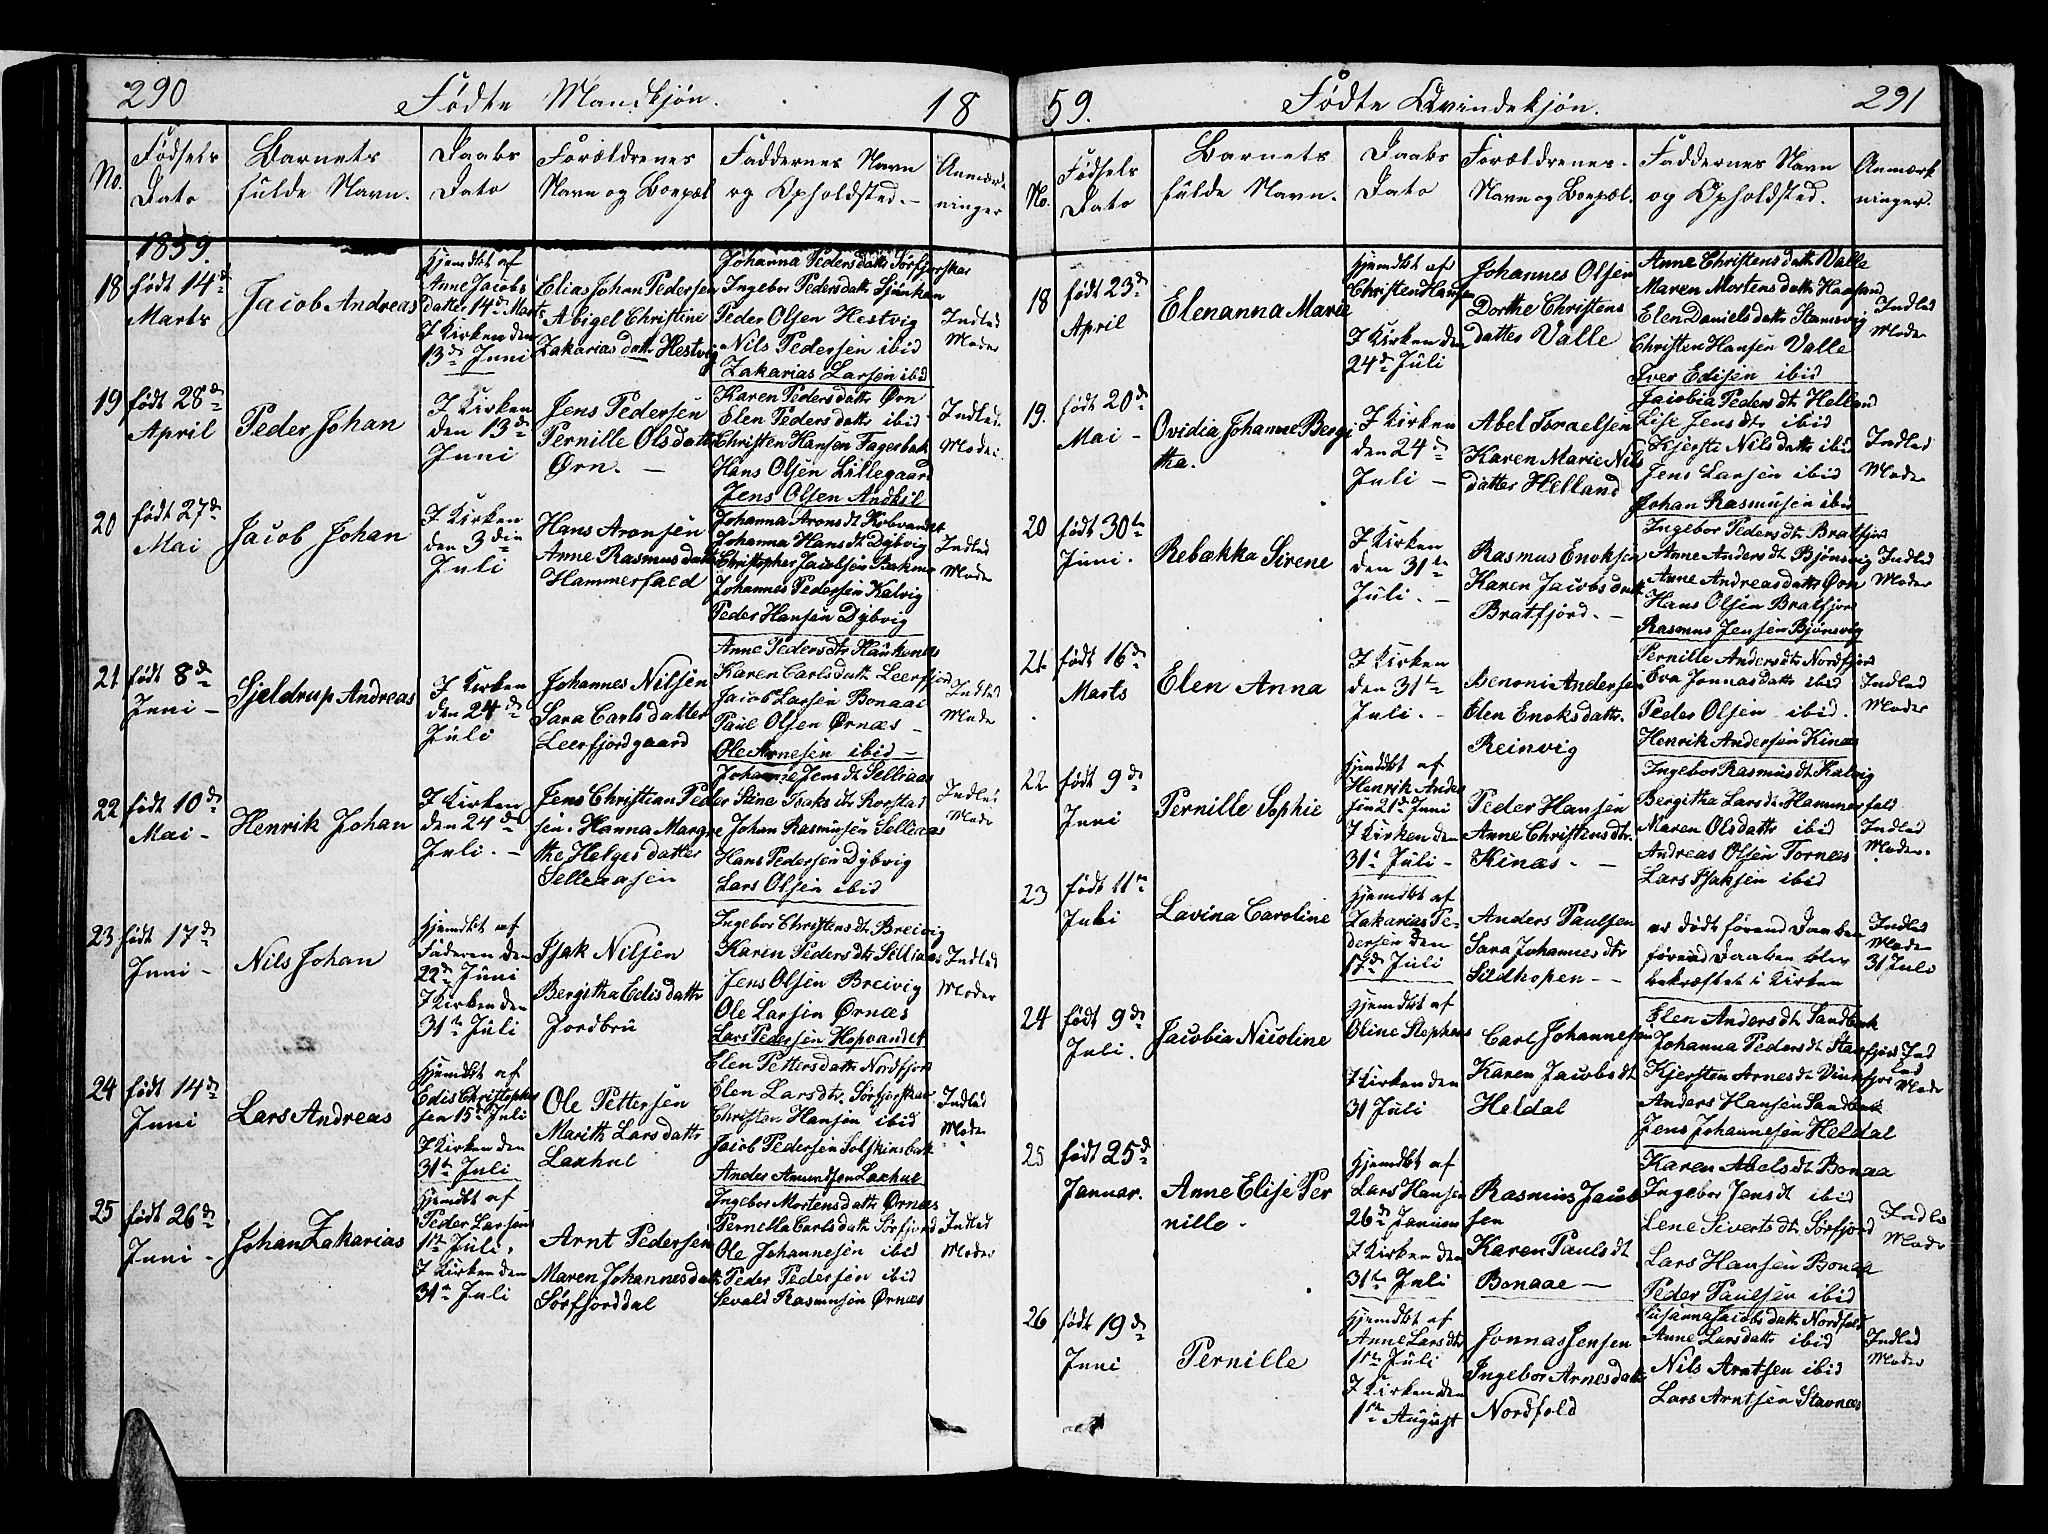 290
Fødte Mandkjøn.
18
No.
Fødsels
Dato
Barnets
fulde Navn.
Daabs
Dato
Forældrenes
Navn og Boepæl
Faddernes Navn
og Opholdsted.
Anmærk
ninger
1859.
18
født 14d
Marts
Jacob Andreas
Hjemdbt af
Anne Jacobs
Datter 14d Marts
I Kirken den
13d Juni
Elias Johan Pedersen
Abigel Christine
Zakarias datt Hestvig
Johanna Pedersdattr Sörfjorskar
Ingebor Pedersdattr
Peder Olsen Hestvig
Nils Pedersen ibid
Zakarias Larsen ibd
Indled
Moder
19
født 28d
April
Peder Johan
I Kirken
den 13d
Juni
Jens Pedersen
Pernille Olsdatter
Ørn. —
Karen Pedersdattr Ørn
Elen Pedersdattr ibid
Christen Hansen Fagerbak
Hans Olsen Lillegaard
Jens Olsen Andkil
Indled.
Moder
20
født 27d
Mai
Jacob Johan
I Kirken
den 3 die
Juli
Hans Aronsen
Anne Rasmusdattr
Hammerfald
Johanna Aronsdt Kobvandet
Johanna Hansdt Dybvig
Christopher Jacobsen Bakme
Johannes Pedersen Kalvig
Peder Hansen Dybvig
Indled
Mode
21
født 8d
Juni —
Sjeldrup Andreas
I Kirken
den 24d
Juli
Johannes Nilsen
Sara Carlsdatter
Leerfjordgaard
Anne Pedersdtr Haukenes
Karen Carlsdattr Leerfjord
Jacob Larsen Bonaae
Paul Olsen Ørnæs —
Ole Arnesen ibid —
Indled
Mode
22
født 10d
Mai —
Henrik Johan
I Kirken
den 24d
Juli. —
Jens Christian Peder
sen. Hanna Margre
the Helgesdatter
Selleaasen
Johanne Jensdt Selliaas
Stine Isaksdtr Rorstad
Johan Rasmusen Selliaas
Hans Pedersen Dybvig
Lars Olsen ibid
Indled
Mode
23
født 17d
Juni —
Nils Johan
Hjemdbt af
Faderen den
22d Juni
I Kirken den
31te Juli
Isak Nilsen
Bergitha Edisdattr
Jordbru
Ingebor Christensdt Breivig
Karen Pedersdtr Selliaas
Jens Olsen Breivig
Ole Larsen Ørnæs
Lars Pedersen Hopvandet
Indled
Moder
24
født 14d
Juni
Lars Andreas
Hjemdbt af
Edis Christopher
sen 15d Juli
I Kirken den
31te Juli
Ole Pettersen
Marith Larsdattr
Laxhul
Elen Pettersdattr Nordfjord
Elen Larsdtr Sörfjorskar
Christen Hansen ibid
Jacob Pedersen Solskinsbak
Anders Amundsen Laxhul
Indled
Moder
25
født 26d
Juni —
Johan Zakarias
Hjemdbt af
Peder Larsen
1te Juli,
I Kirken den
31te Juli
Arnt Pedersen
Maren Johannesdatr
Sörfjorddal
Ingebor Mortensdattr Ørnæs
Pernella Carlsdattr Sörfjord
Ole Johannesen ibid
Peder Pedersen ibid
Sevald Rasmusen Ørnæs
Indled
Moder
59.
Fødte Qvindekjøn.
291
No.
Fødsels
Dato
Barnets
fulde Navn.
Daabs
Dato
Forældrenes
Navn og Boepæl.
Faddernes Navn
og Opholdsted.
Anmærk
ninger.
18
født 23d
April
Elenanna Marie
Hjemdbt af
Christen Hansen
I Kirken den
24d Juli
Johannes Olsen
Dorthe Christens
datter Valle
Anne Christensdattr Valle
Maren Mortensdattr
Elen Danielsdattr Stamsvig
Christen Hansen Valle
Iver Edisen ibid
Indled
Mode
19.
født 20d
Mai —
Ovidia Johanne Bergi
tha.
I Kirken
den 24d
Juli —
Abel Israelsen
Karen Marie Nils
datter Helland
Jacobia Pedersdt Helland
Lise Jensdtr ibid
Kjerste Nilsdattr ibid
Jens Larsen ibid
Johan Rasmusen ibid
Indled
Moder
20
født 30te
Juni.
Rebækka Sirene
I Kirken
den 31te
Juli. —
Rasmus Enoksen
Karen Jacobsdatt
Bratfjord. —
Ingebor Pedersdt Bratfjord
Anne Andersdt Bjønsvig
Anne Andreasdattr Ørn
Hans Olsen Bratfjord
Rasmus Jensen Bjønsvig
Indled
Moder
21
født 16d
Marts
Elen Anna
I Kirken
den 31te
Juli. —
Benoni Andersen
Elen Enoksdattr.
Reinvig
Pernille Andersdtr Nordfjord
Eva Jonnasdattr ibid
Peder Olsen ibid.
Henrik Andersen Kinæs
Indled
Moder
22
født 9d
Juni
Pernille Sophie
Hjemdbt af
Henrik Ander
sen 21d Juni
I Kirken den
31te Juli —
Peder Hansen
Anne Christensdtr.
Kinæs. —
Ingebor Rasmusdt Kalvig
Bergitha Larsdt Hammerfald
Maren Olsdattr ibid
Andreas Olsen Tornæs
Lars Isaksen ibid
Indled
Moder.
23
født 11te
Juli
Lavina Caroline
Hjemdbt af
Zakarias Pe-
dersen den
17d Juli
Anders Paulsen
Sara Johannesdtr
Sildhopen —
er dødt førend Daaben
førend Daaben blev
bekræftet i Kirken
Indled
Mode
31 Juli
24
født 9d
Juli.
Jacobia Nicoline
Hjemdbt af
Oline Stephens
I Kirken den
31 Juli
Carl Johannesen
Karen Jacobsdt
Heldal
Elen Andersdt Sandbak
Johanna Pedersdt Storfjord
Kjersten Arnesdt Vinkfjor
Anders Hansen Sandbak
Jens Johannesen Heldal
Ind
led
Mode
25
født 25d
Januar.
Anne Elise Per
nille —
Hjemdbt af
Lars Hansen
26d Januar
I Kirken den
31te Juli
Rasmus Jacob
sen
Karen Paulsdt
Bonaae —
Karen Abelsdt Bonaa
Ingebor Jansdt ibid
Lene Sivertsdtr Sörfjord
Lars Hansen Bonaa
Peder Paulsen ibid
Indled
Mode
26
født 19d
Juni
Pernille
Hjemdbt af
Anne Larsdtr
1te Juli
I Kirken den
1te August
Jonnas Jensen
Ingebor Arnesdattr
Nordfold
Susanna Jacobsdattr Nordfold
Anne Larsdattr ibid
Nils Arntsen ibid
Lars Arntsen Stavnæs
Indled
Moder